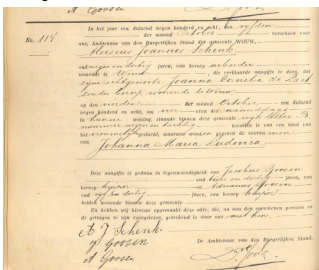 A Goosen
No. 114
In het jaar een duizend negen honderd en acht, den vijfden
der maand October verscheen voor
ons, Ambtenaar van den Burgerlijken Stand der gemeente WOUW,
Aloisius Joannes Schenk
oud negen en dertig jaren, van beroep arbeider
wonende te Wouw die verklaarde aangifte te doen, dat
zijne echtgenoote Joanna Cornelia de Laet
zonder beroep wonende te Wouw
op den vierden der maand October een duizend
negen honderd en acht, om vier uren des namiddags
in hunne woning, staande binnen deze gemeente wijk letter B
nummer negen en dertig bevallen is van een kind van
het vrouwelijk geslacht, waaraan werden gegeven de voornamen
van Johanna Maria Ludovica
Deze aangifte is gedaan in tegenwoordigheid van Jacobus Goosen
oud en dertig jaren, van
beroep en Adrianus Goosen
oud dertig jaren, van beroep
beiden wonende binnen deze gemeente
En hebben wij hiervan opgemaakt deze akte, die, na aan den comparant en
de getuigen te zijn voorgelezen, geteekend is door ons met hen
A J Schenk
J Goosen
A Goosen
De Ambtenaar van den Burgerlijken Stand,